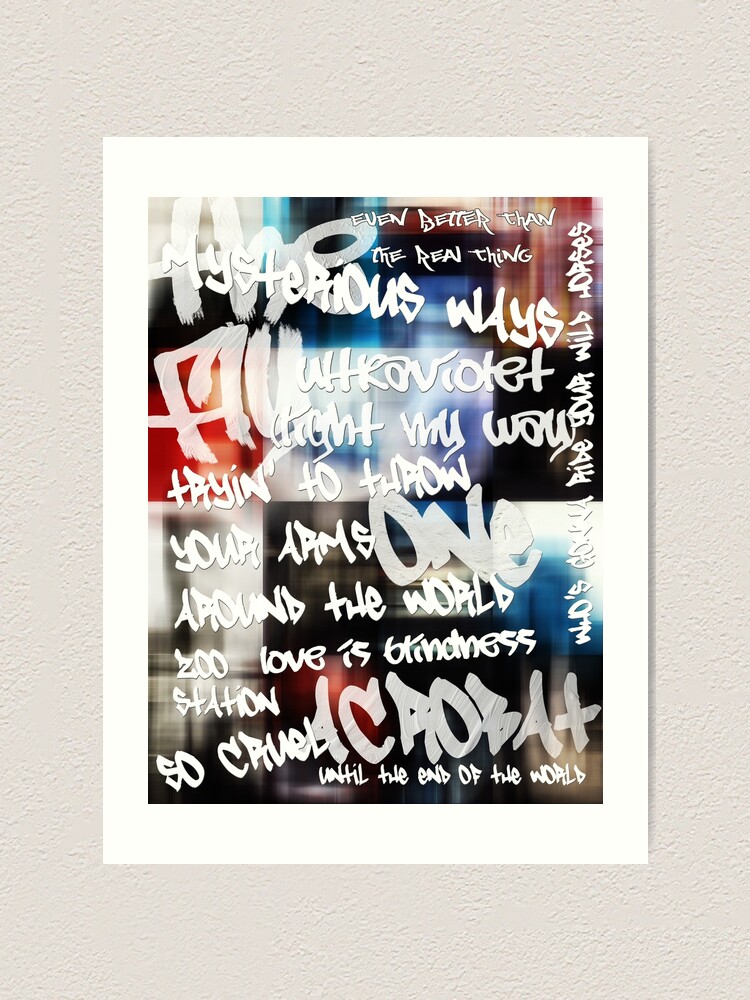 EVEN BETTER THAN
THE REAL THING
MYSTERIOUS WAYS
FLY
ULTRAVIOLET
(LIGHT MY WAY)
TRYIN' TO THROW
YOUR ARMS
AROUND THE WORLD
ONE
WHO'S GONNA RIDE YOUR WILD HORSES
ZOO
STATION
LOVE IS BLINDNESS
ACROBAT
SO CRUEL
UNTIL THE END OF THE WORLD